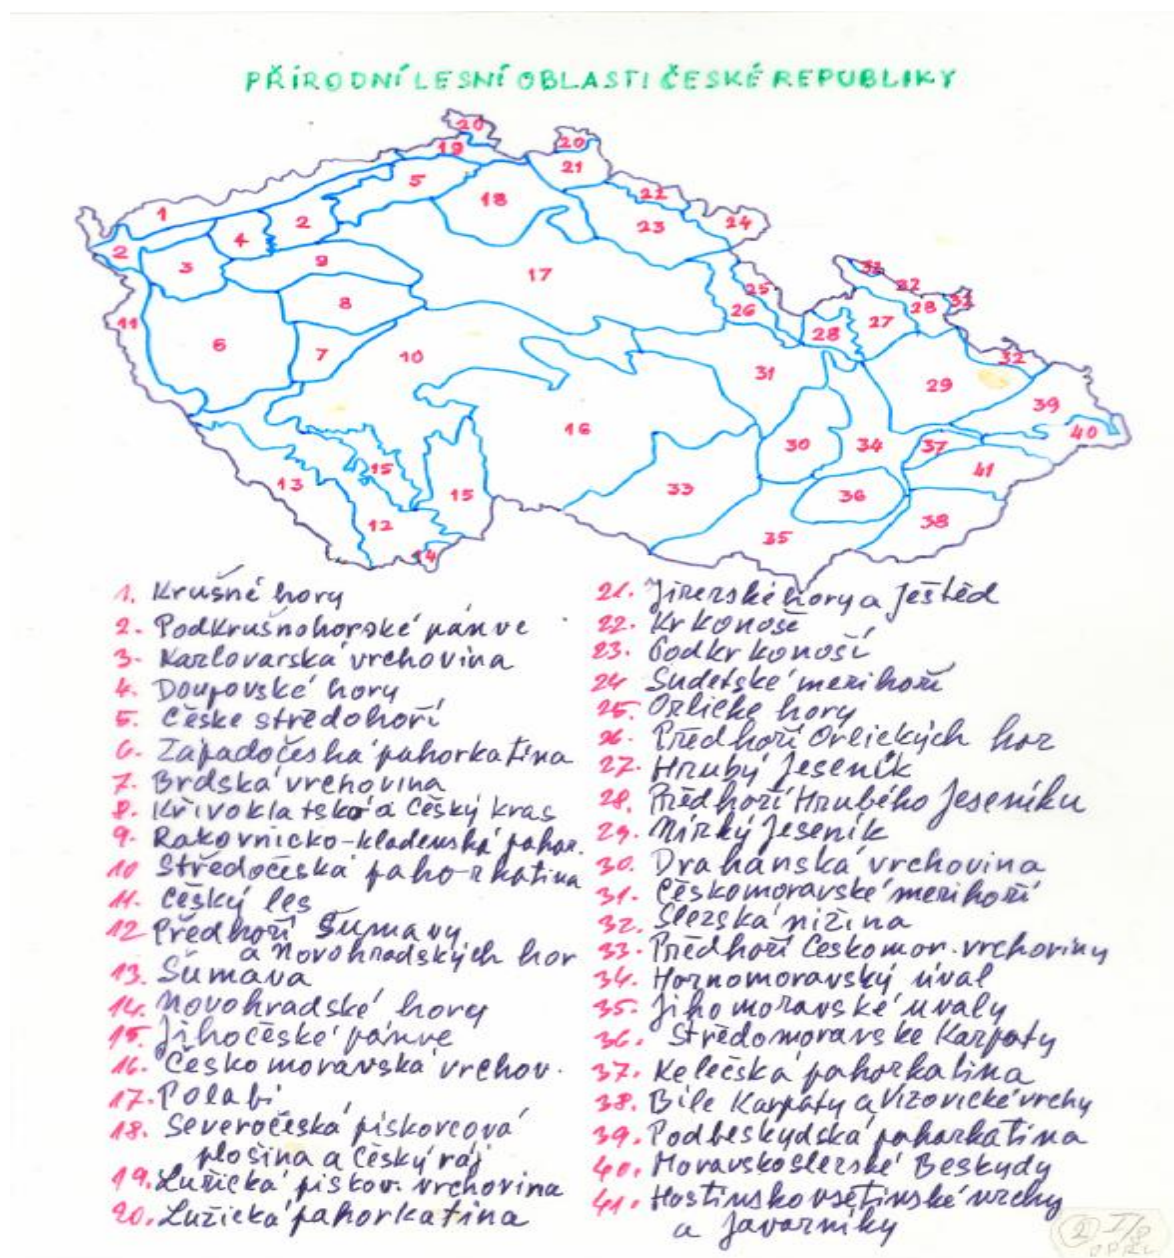 PŘÍRODNÍ LESNÍ OBLASTI ČESKÉ REPUBLIKY
20
19
20
21
5
18
22
1
2
23
24
4
2
3
9
17
32
25
22
28
32
11
8
26
27
28
6
7
10
32
31
29
39
16
30
34
37
40
15
41
13
15
33
36
12
38
35
14
1. Krušné hory
2. Podkrušnohorské pánve
3. Karlovarská vrchovina
4. Doupovské hory
5. České středohoří
6. Západočeská pahorkatina
7. Brdská vrchovina
8. Křivoklatsko a Český kras
9. Rakovnicko-kladenská pahor.
10 Středočeská pahorkatina
11. Český les
12 Předhoří Šumavy
a Novohradských hor
13. Šumava
14. Novohradské hory
15. Jihočeské pánve
16. Českomoravská vrchov.
17. Polabí
18. Severočeská pískovcová
plošina a Český ráj
19. Lužická pískov. vrchovina
20. Lužická pahorkatina
21. Jizerské hory a Ještěd
22. Krkonoše
23. Podkrkonoší
24 Sudetské mezihoří
25. Orlické hory
26. Předhoří Orlických hor
27. Hrubý Jeseník
28. Předhoří Hrubého Jeseníku
29. Nízký Jeseník
30. Drahanská vrchovina
31. Českomoravské mezihoří
32. Slezská nížina
33. Předhoří Českomor. vrchoviny
34. Hornomoravský úval
35. Jihomoravské úvaly
36. Středomoravské Karpaty
37. Kelečská pahorkatina
38. Bílé Karpaty a Vizovické vrchy
39. Podbeskydská pahorkatina
40. Moravskoslezské Beskydy
41. Hostinskovsetínské vrchy
a Javorníky
2